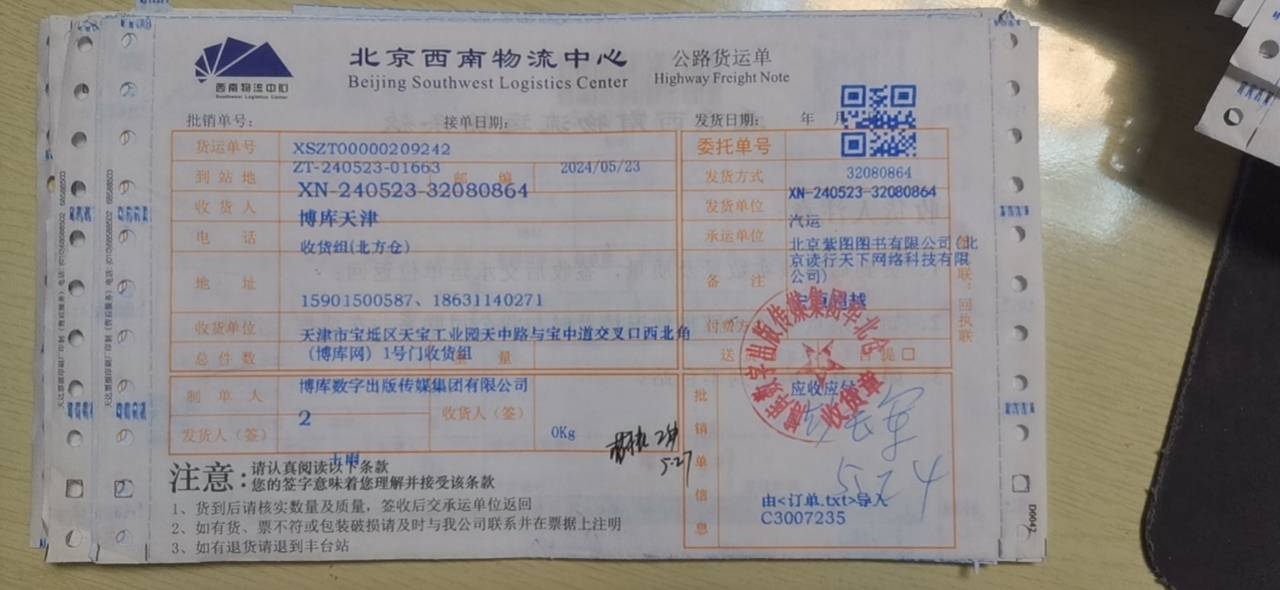 西南物流中心
Southwest Logistics Center
北京西南物流中心
Beijing Southwest Logistics Center
公路货运单
Highway Freight Note
批销单号：
接单日期：
发货日期： 年 月
货运单号
XSZT00000209242
委托单号
ZT-240523-01663
到站地
邮 编
2024/05/23
发货方式
32080864
XN-240523-32080864
XN-240523-32080864
收货人
博库天津
发货单位
汽运
电 话
收货组(北方仓)
承运单位
北京紫图图书有限公司(北
京读行天下网络科技有限
公司)
地 址
15901500587、18631140271
备 注
收货单位
天津市宝坻区天宝工业园天中路与宝中道交叉口西北角
(博库网) 1号门收货组
付货方
总件数
量
送
提 口
制单人
博库数字出版传媒集团有限公司
收货人（签）
应收应付
2
发货人（签）
0Kg
批
销
单
信
息
数字出版传媒集团华北仓
收货章
5.27
5.24
由<订单.txt>导入
C3007235
注意：
请认真阅读以下条款
您的签字意味着您理解并接受该条款
1、货到后请核实数量及质量，签收后交承运单位返回
2、如有货、票不符或包装破损请及时与我公司联系并在票据上注明
3、如有退货请退到丰台站
联：回执联
D6042